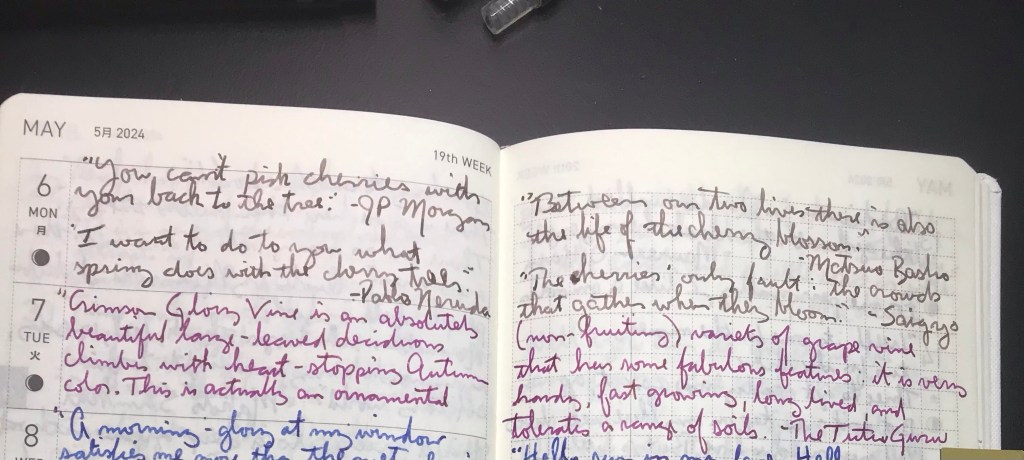 MAY 5月 2024
19th WEEK
6
MON
月
"You can't pick cherries with
your back to the tree." -JP Morgan
"I want to do to you what
spring does with the cherry trees."
-Pablo Neruda
7
TUE
火
"Crimson Glory Vine is an absolutely
beautiful large-leaved deciduous
climber with heart-stopping Autumn
color. This is actually an ornamental
8
WED
"A morning-glory at my window
satisfies me more than the
"Between our two lives there is also
the life of the cherry blossom."
-Matsuo Basho
"The cherries' only fault: the crowds
that gather when they bloom." -Saigyo
(non-fruiting) variety of grape vine
that has some fabulous features: it is very
hardy, fast growing, long lived and
tolerates a range of soils. -The Tutu Guru
"Hello, sun in my face. Hello